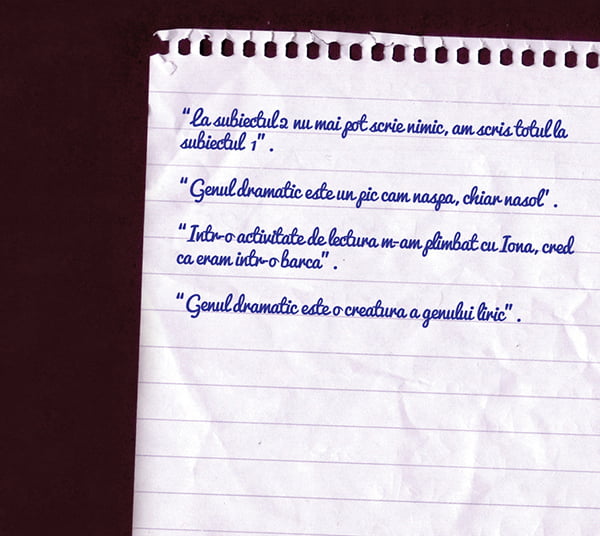 "La subiectul 2 nu mai pot scrie nimic, am scris totul la
subiectul 1".
"Genul dramatic este un pic cam naspa, chiar nasol'.
"Intr-o activitate de lectura m-am plimbat cu Iona, cred
ca eram intr-o barca".
"Genul dramatic este o creatura a genului liric".